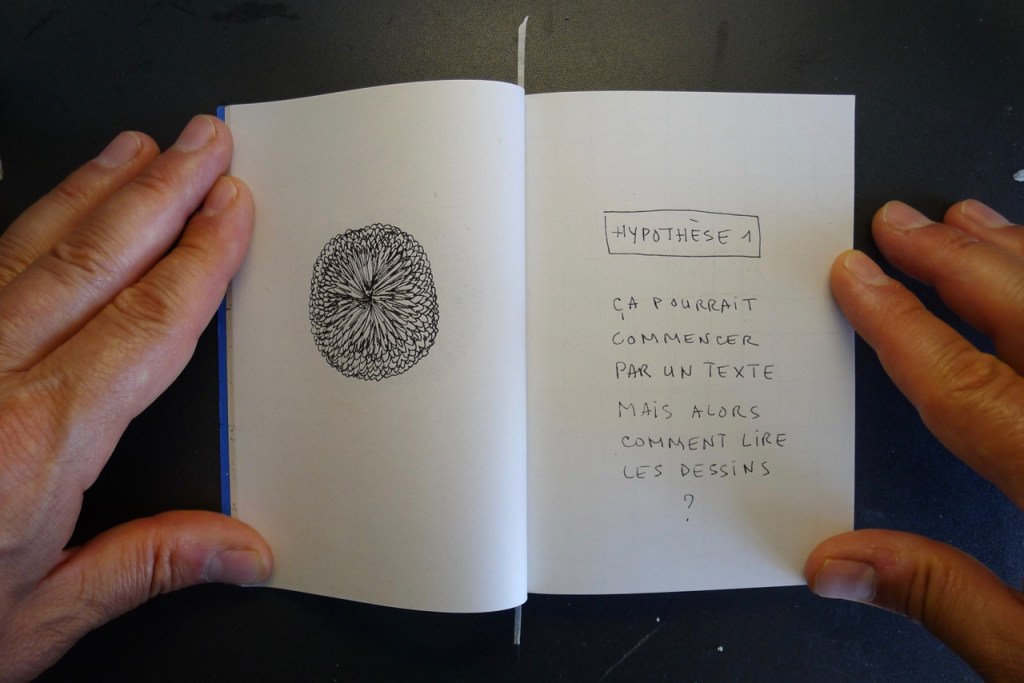 HYPOTHÈSE 1
ÇA POURRAIT
COMMENCER
PAR UN TEXTE
MAIS ALORS
COMMENT LIRE
LES DESSINS
?